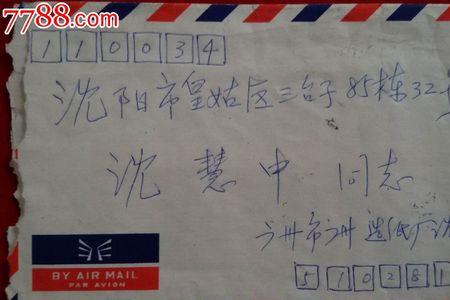 7788.com
110034
沈阳市皇姑区三台子85栋32号
沈慧中 同志
广州市广州造纸厂沈
BY AIR MAIL
PAR AVION
510281